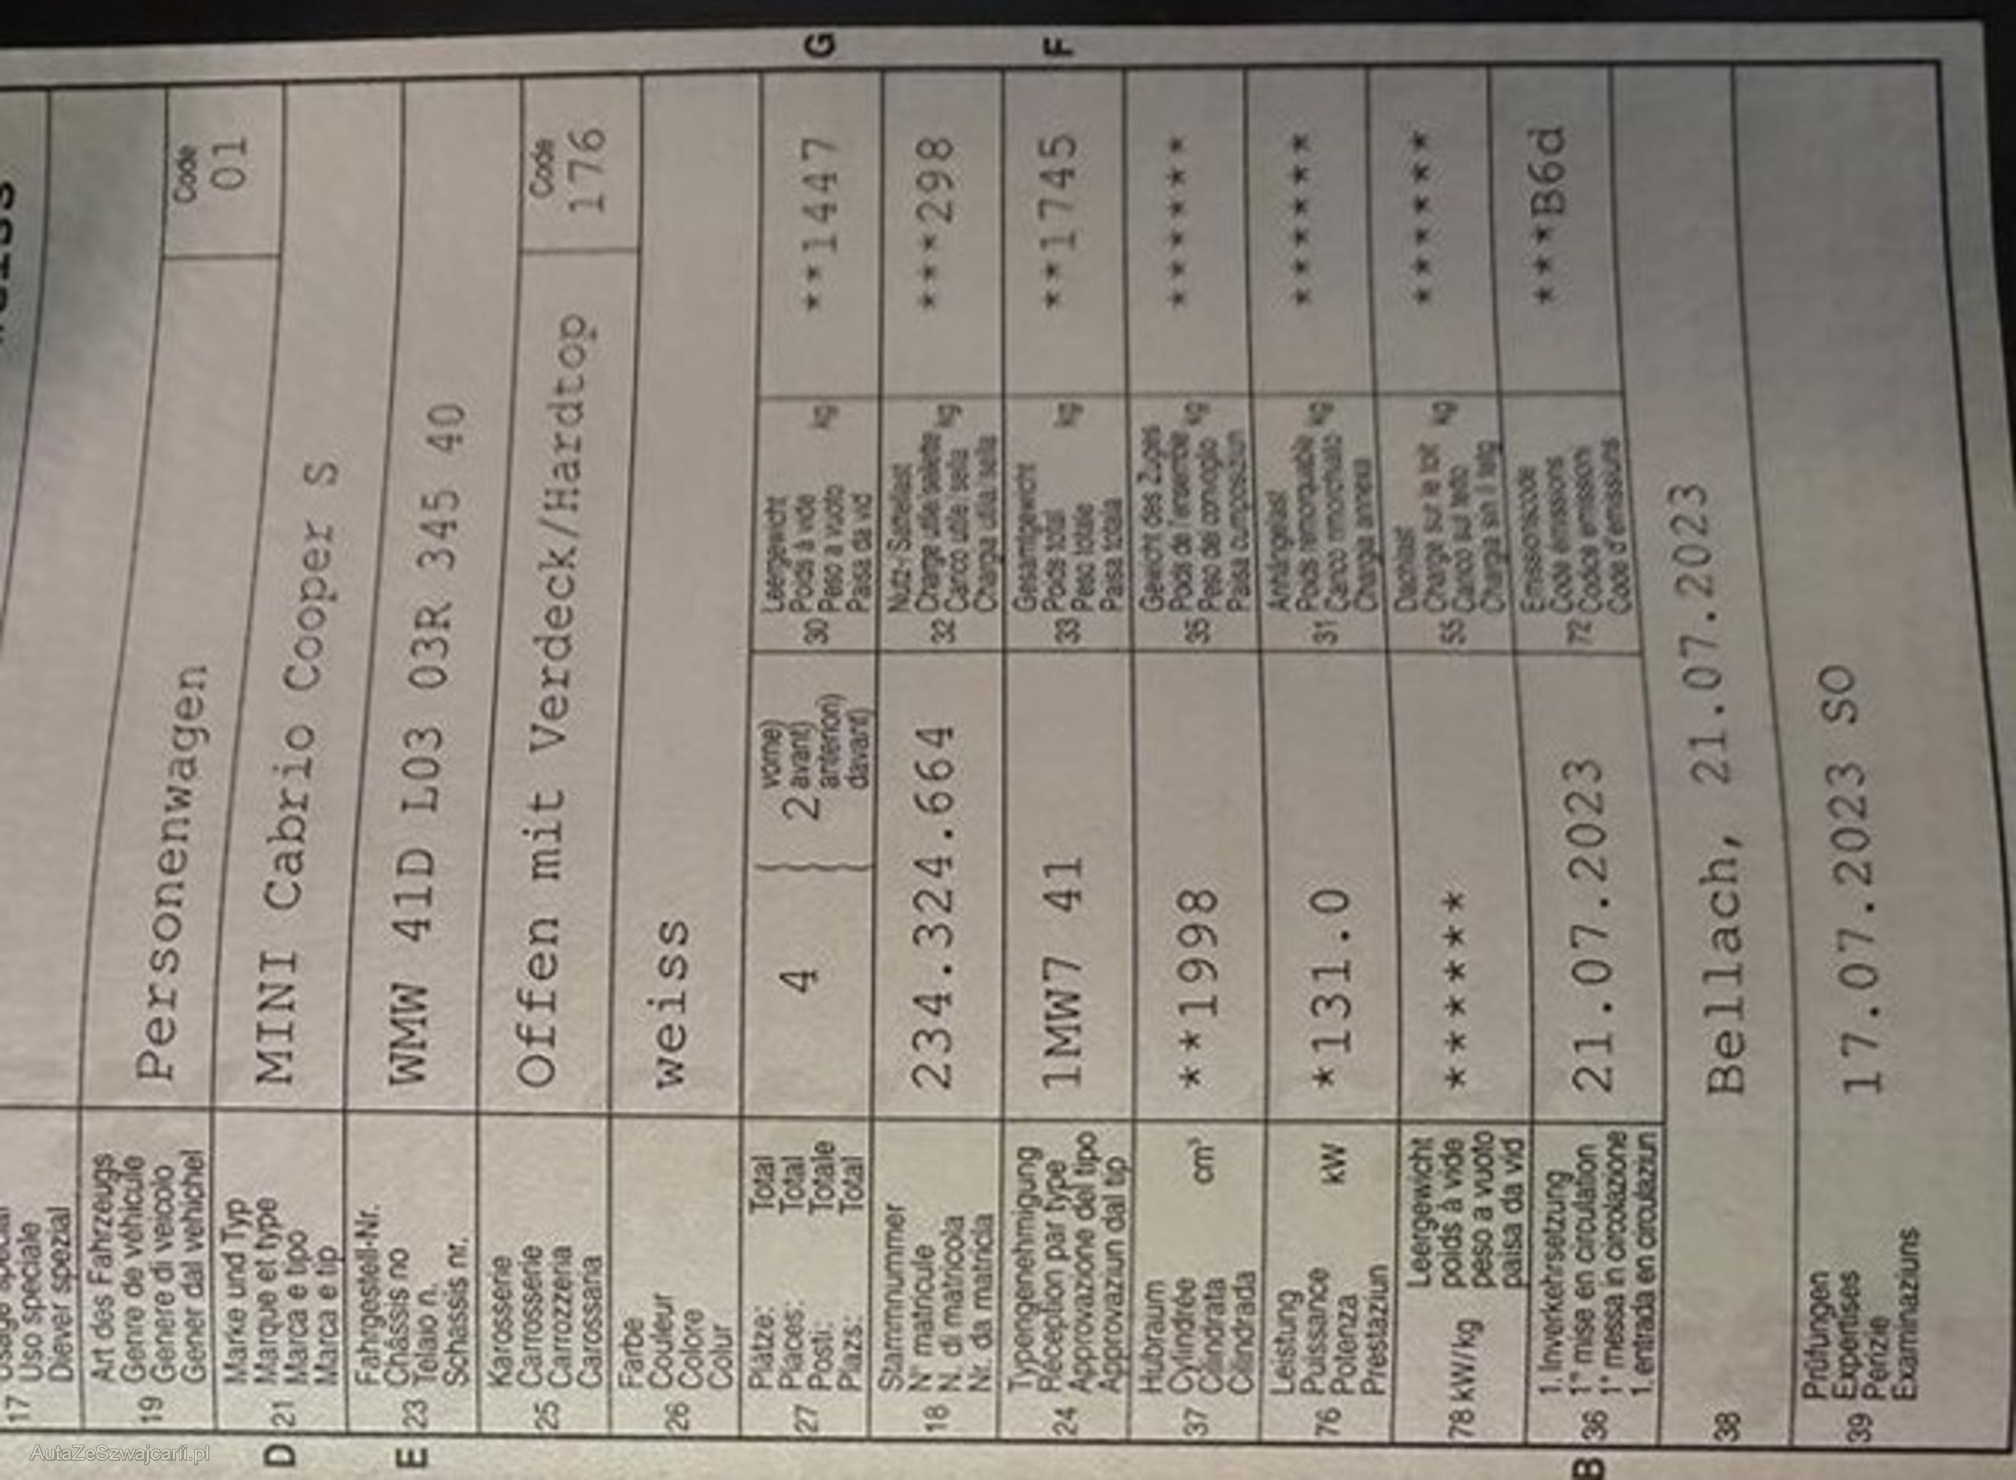 17 Usage spécial
Uso speciale
Diever spezial
weiss
19 Art des Fahrzeugs
Genre de véhicule
Genere di veicolo
Gener dal vehichel
Personenwagen
Code
01
D 21 Marke und Typ
Marque et type
Marca e tipo
Marca e tip
MINI Cabrio Cooper S
E 23 Fahrgestell-Nr.
Châssis no
Telaio n.
Schassis nr.
WMW 41D L03 03R 345 40
25 Karosserie
Carrosserie
Carrozzeria
Carossaria
Offen mit Verdeck/Hardtop
Code
176
26 Farbe
Couleur
Colore
Colur
weiss
27 Plätze: Total
Places: Total
Posti: Totale
Plazs: Total
4 2 vorne)
avant)
anteriori)
davant)
30 Leergewicht
Poids à vide
Peso a vuoto kg
Paisa da vid
**1447 G
18 Stammnummer
N° matricule
N. di matricola
Nr. da matricla
234.324.664
32 Nutz-/Sattellast
Charge utile/sellette
Carico utile/sella kg
Chargia utila/sella
***298
24 Typengenehmigung
Réception par type
Approvazione del tipo
Approvaziun dal tip
1MW7 41
33 Gesamtgewicht
Poids total kg
Peso totale
Paisa totala
**1745 F
37 Hubraum
Cylindrée cm³
Cilindrata
Cilindrada
**1998
35 Gewicht des Zuges
Poids de l'ensemble kg
Peso del convoglio
Paisa cumposiziun
*******
76 Leistung
Puissance kW
Potenza
Prestaziun
*131.0
31 Anhängelast
Poids remorquable
Carico rimorchiato kg
Chargia annexa
*******
78 kW/kg Leergewicht
poids à vide
peso a vuoto
paisa da vid
*******
55 Dachlast
Charge sur le toit kg
Carico sul tetto
Chargia sin il tetg
*******
B 36 1. Inverkehrsetzung
1re mise en circulation
1a messa in circolazione
1. entrada en circulaziun
21.07.2023
72 Emissionscode
Code émissions
Codice emissioni
Code d'emissiuns
***B6d
38 Bellach, 21.07.2023
39 Prüfungen
Expertises
Perizie
Examinaziuns
17.07.2023 SO
AutaZeSzwajcarii.pl